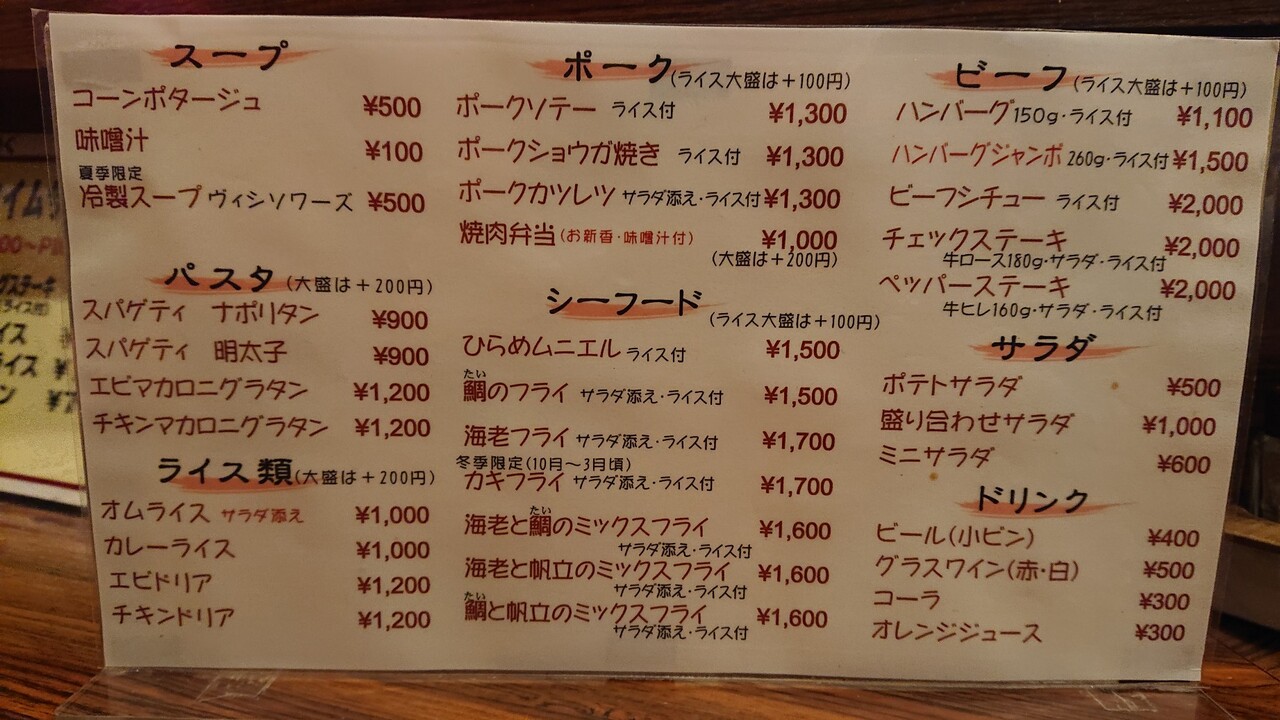 スープ
コーンポタージュ ¥500
味噌汁 ¥100
夏季限定
冷製スープ ヴィシソワーズ ¥500
パスタ (大盛は+200円)
スパゲティ ナポリタン ¥900
スパゲティ 明太子 ¥900
エビマカロニグラタン ¥1,200
チキンマカロニグラタン ¥1,200
ライス類 (大盛は+200円)
オムライス サラダ添え ¥1,000
カレーライス ¥1,000
エビドリア ¥1,200
チキンドリア ¥1,200
ポーク (ライス大盛は+100円)
ポークソテー ライス付 ¥1,300
ポークショウガ焼き ライス付 ¥1,300
ポークカツレツ サラダ添え・ライス付 ¥1,300
焼肉弁当 (お新香・味噌汁付) ¥1,000
(大盛は+200円)
シーフード (ライス大盛は+100円)
ひらめムニエル ライス付 ¥1,500
たい
鯛のフライ サラダ添え・ライス付 ¥1,500
海老フライ サラダ添え・ライス付 ¥1,700
冬季限定(10月〜3月頃)
カキフライ サラダ添え・ライス付 ¥1,700
たい
海老と鯛のミックスフライ ¥1,600
サラダ添え・ライス付
海老と帆立のミックスフライ ¥1,600
サラダ添え・ライス付
たい
鯛と帆立のミックスフライ ¥1,600
サラダ添え・ライス付
ビーフ (ライス大盛は+100円)
ハンバーグ 150g・ライス付 ¥1,100
ハンバーグジャンボ 260g・ライス付 ¥1,500
ビーフシチュー ライス付 ¥2,000
チェックステーキ ¥2,000
牛ロース180g・サラダ・ライス付
ペッパーステーキ ¥2,000
牛ヒレ160g・サラダ・ライス付
サラダ
ポテトサラダ ¥500
盛り合わせサラダ ¥1,000
ミニサラダ ¥600
ドリンク
ビール(小ビン) ¥400
グラスワイン(赤・白) ¥500
コーラ ¥300
オレンジジュース ¥300